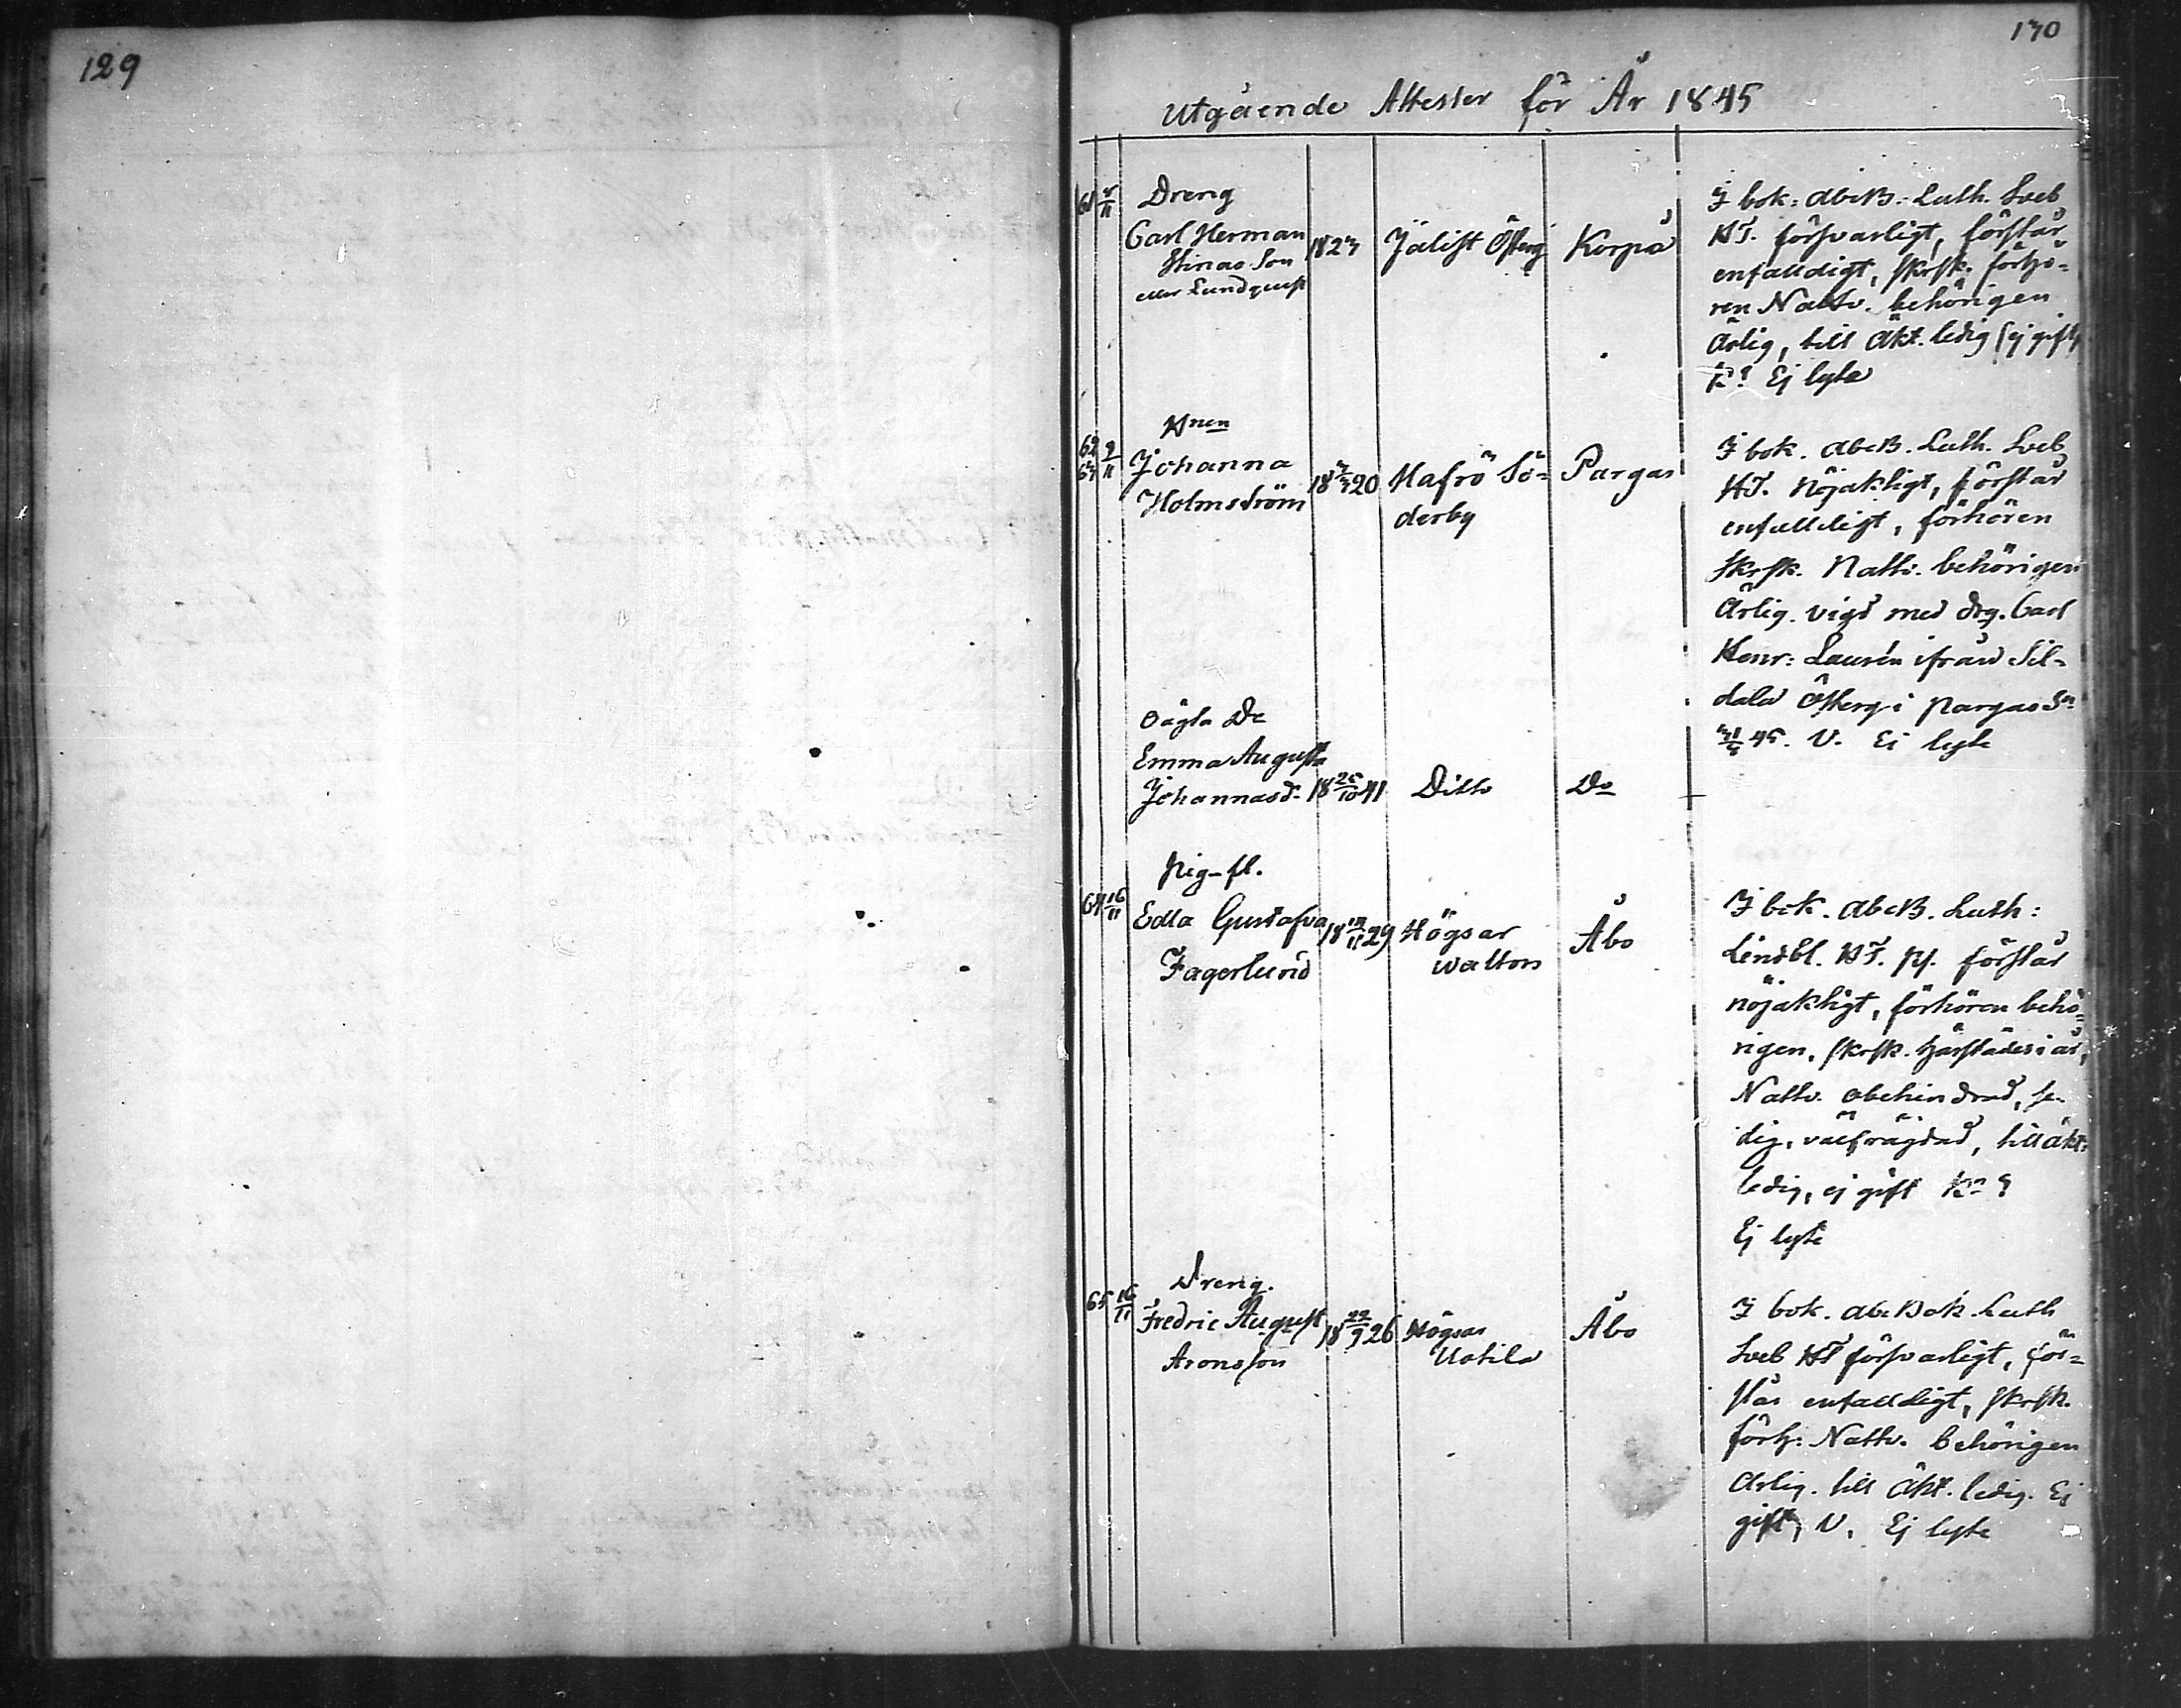 129
130
Utgående Attester för År 1845
61 5/11 Dreng
Carl Herman
Stinas Son
eller Lundquist
1823
Jälist Österg
Korpo
I bok: AbcB: Luth. Sveb
HT. försvarligt, förstår
enfalldigt, skrsk. förhö-
ren Nattv. behörigen
Ärlig, till äkt. ledig (ej gift)
Ej lyte
62 63 2/11
Johanna
Holmström
20
Hafrö Sö-
derby
Pargas
I bok. AbcB. Luth. Sveb
HT. Nöjakligt, förstår
enfalldigt, förhören
skrsk. Nattv. behörigen
Ärlig. vigd med drg. Carl
Henr: Laurén ifrån Sil-
dala Österg i Pargas Sn
45. V. Ej lyte
oägta Dr
Emma Augusta
Johannasd.
18 25/10 41
Ditto
Do
Pig-fl.
64 16/11
Edla Gustafva
Fagerlund
29
Högsar
Waltons
Åbo
I bok. AbcB. Luth:
Lindbl. HT. förstår
nöjakligt, förhören behö-
rigen, skrsk. härstädes i år,
Nattv. obehindrad, se-
dig, välfrägdad, till äkt:
ledig, ej gift
Ej lyte
65 16/11
Dreng.
Fredric August
Aronsson
18 22/9 26
Högsar
Uotila
Åbo
I bok. Abc Bok Luth
Sveb HT försvarligt, för-
står enfalldigt, skrsk.
förh: Nattv. behörigen
Ärlig. till äkt. ledig. Ej
gift, V. Ej lyte